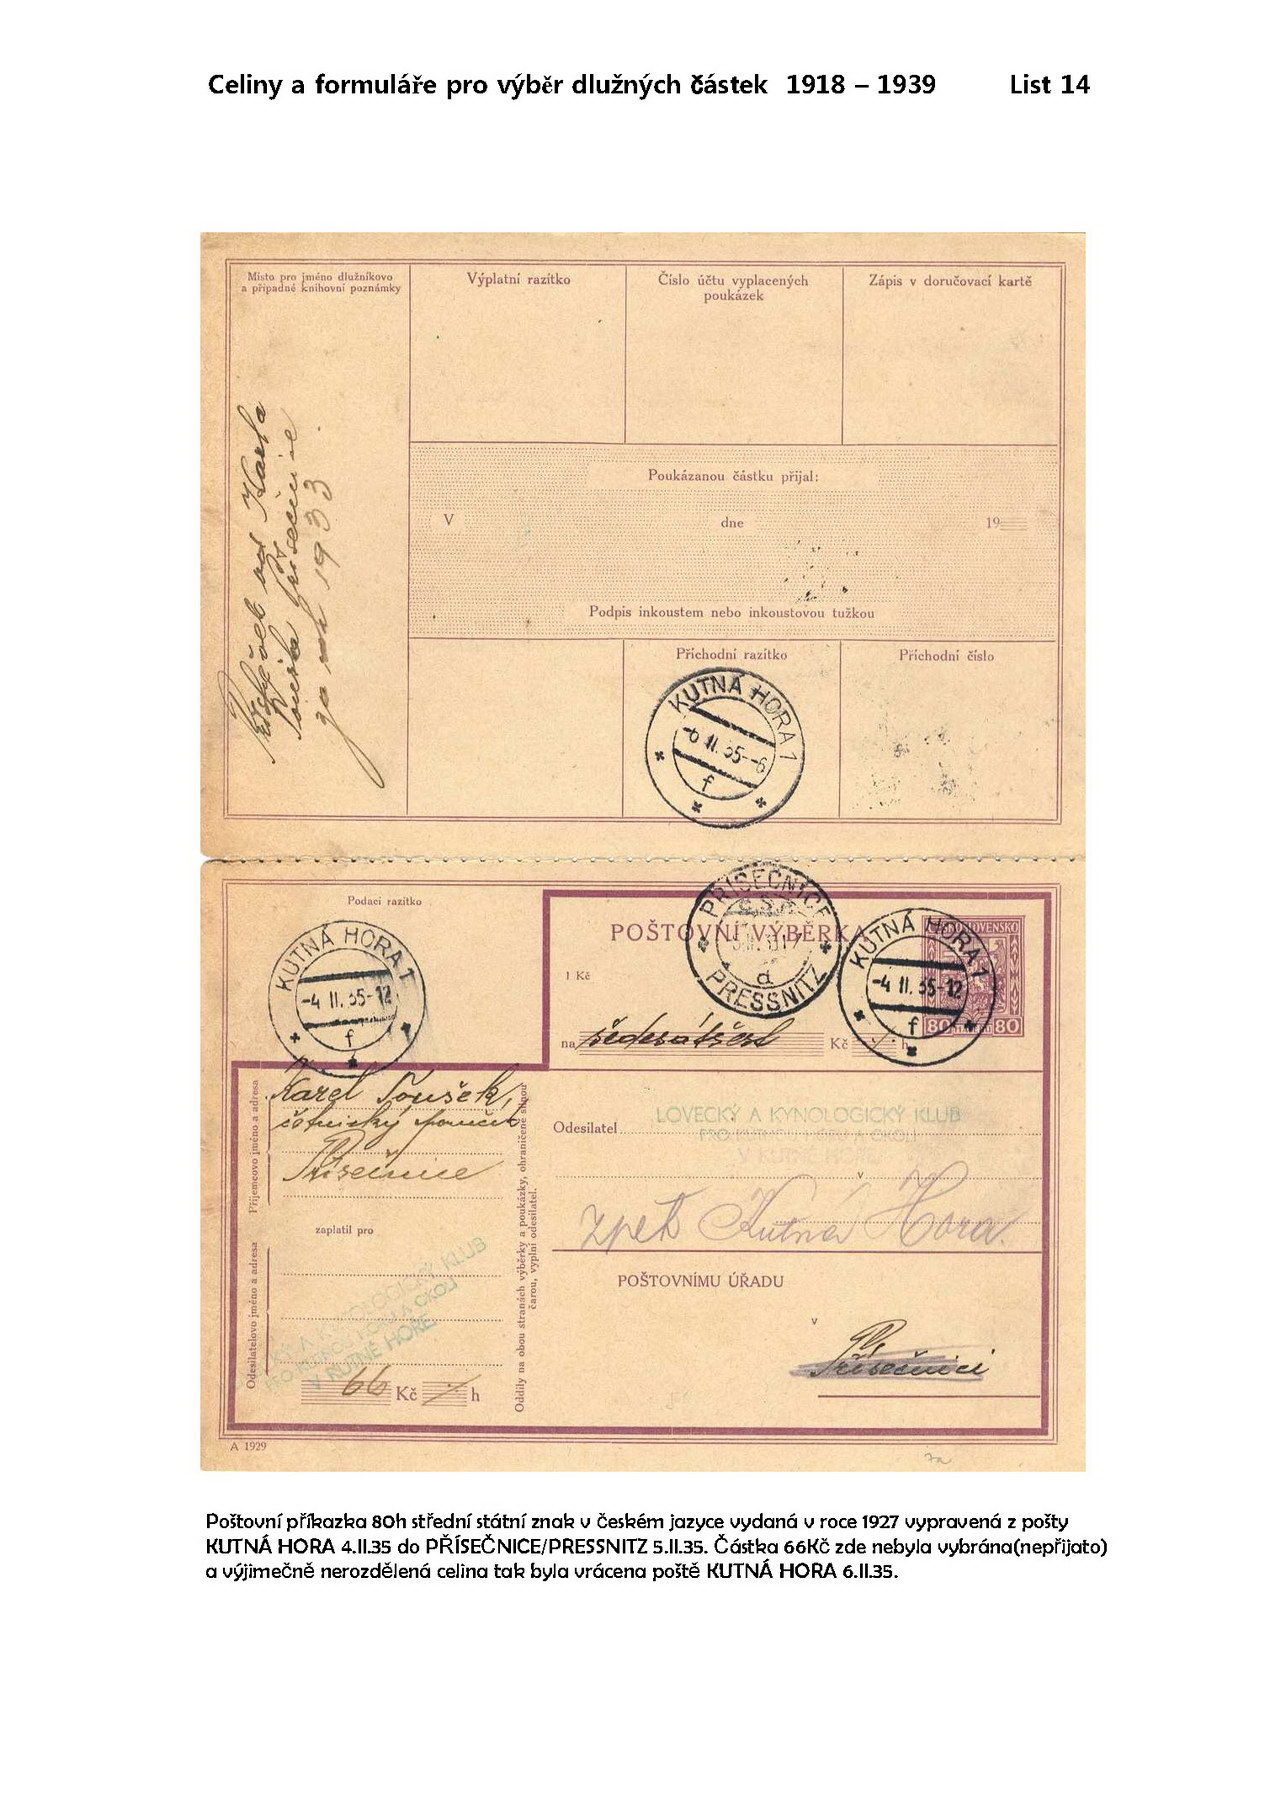 Celiny a formuláře pro výběr dlužných částek 1918 – 1939 List 14
Místo pro jméno dlužníkovo
a případné knihovní poznámky
Výplatní razítko
Číslo účtu vyplacených
poukázek
Zápis v doručovací kartě
od Karla
za rok 1933
Poukázanou částku přijal:
V dne 19
Podpis inkoustem nebo inkoustovou tužkou
Příchodní razítko
Příchodní číslo
KUTNÁ HORA 1
-6 II. 35--6
f
Podací razítko
KUTNÁ HORA 1
-4 II. 35-12
f
POŠTOVNÍ VÝBĚRKA
PŘÍSEČNICE
Č.S.P.
d
PRESSNITZ
KUTNÁ HORA 1
-4 II. 35-12
f
ČESKOSLOVENSKO
80 80
1 Kč
na šedesátšest Kč h
Příjemcovo jméno a adresa
Karel Toušek,
četnický
Přísečnice
zaplatil pro
Odesilatelovo jméno a adresa
A KYNOLOGICKÝ KLUB
V KUTNÉ HOŘE
66 Kč h
Oddíly na obou stranách výběrky a poukázky, ohraničené silnou
čarou, vyplní odesilatel.
Odesilatel
LOVECKÝ A KYNOLOGICKÝ KLUB
PRO KUTNOU HORU A OKOLÍ
V KUTNÉ HOŘE
v
zpět Kutná Hora.
POŠTOVNÍMU ÚŘADU
v
Přísečnici
A 1929
Poštovní příkazka 80h střední státní znak v českém jazyce vydaná v roce 1927 vypravená z pošty
KUTNÁ HORA 4.II.35 do PŘÍSEČNICE/PRESSNITZ 5.II.35. Částka 66Kč zde nebyla vybrána(nepřijato)
a výjimečně nerozdělená celina tak byla vrácena poště KUTNÁ HORA 6.II.35.